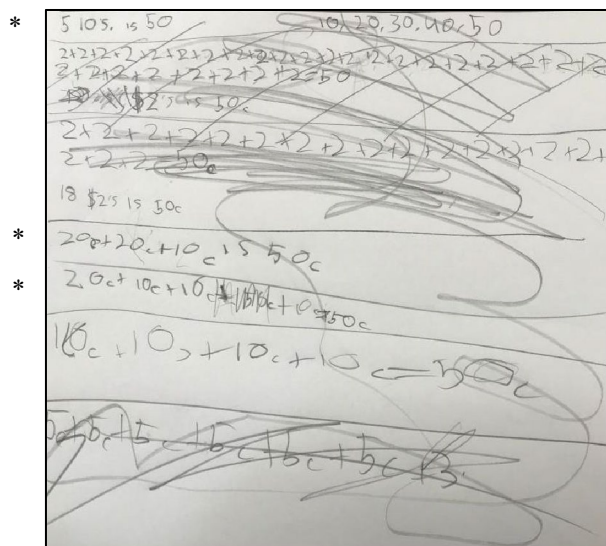 * 5 10s. is 50 10, 20, 30, 40, 50
2+2+2+2+2+2+2+2+2+2+2+2+2+2+2+2+2+2
2+2+2+2+2+2+2+2=50
$2's is 50c
2+2+2+2+2+2+2+2+2+2+2+2+2+2+2+
2+2+2=50c
18 $2's is 50c
* 20c+20c+10c is 50c
* 20c+10c+10c +10=50c
10c+10c+10c+10c=50c
5c+5c+5c+5c+5c+5c+5